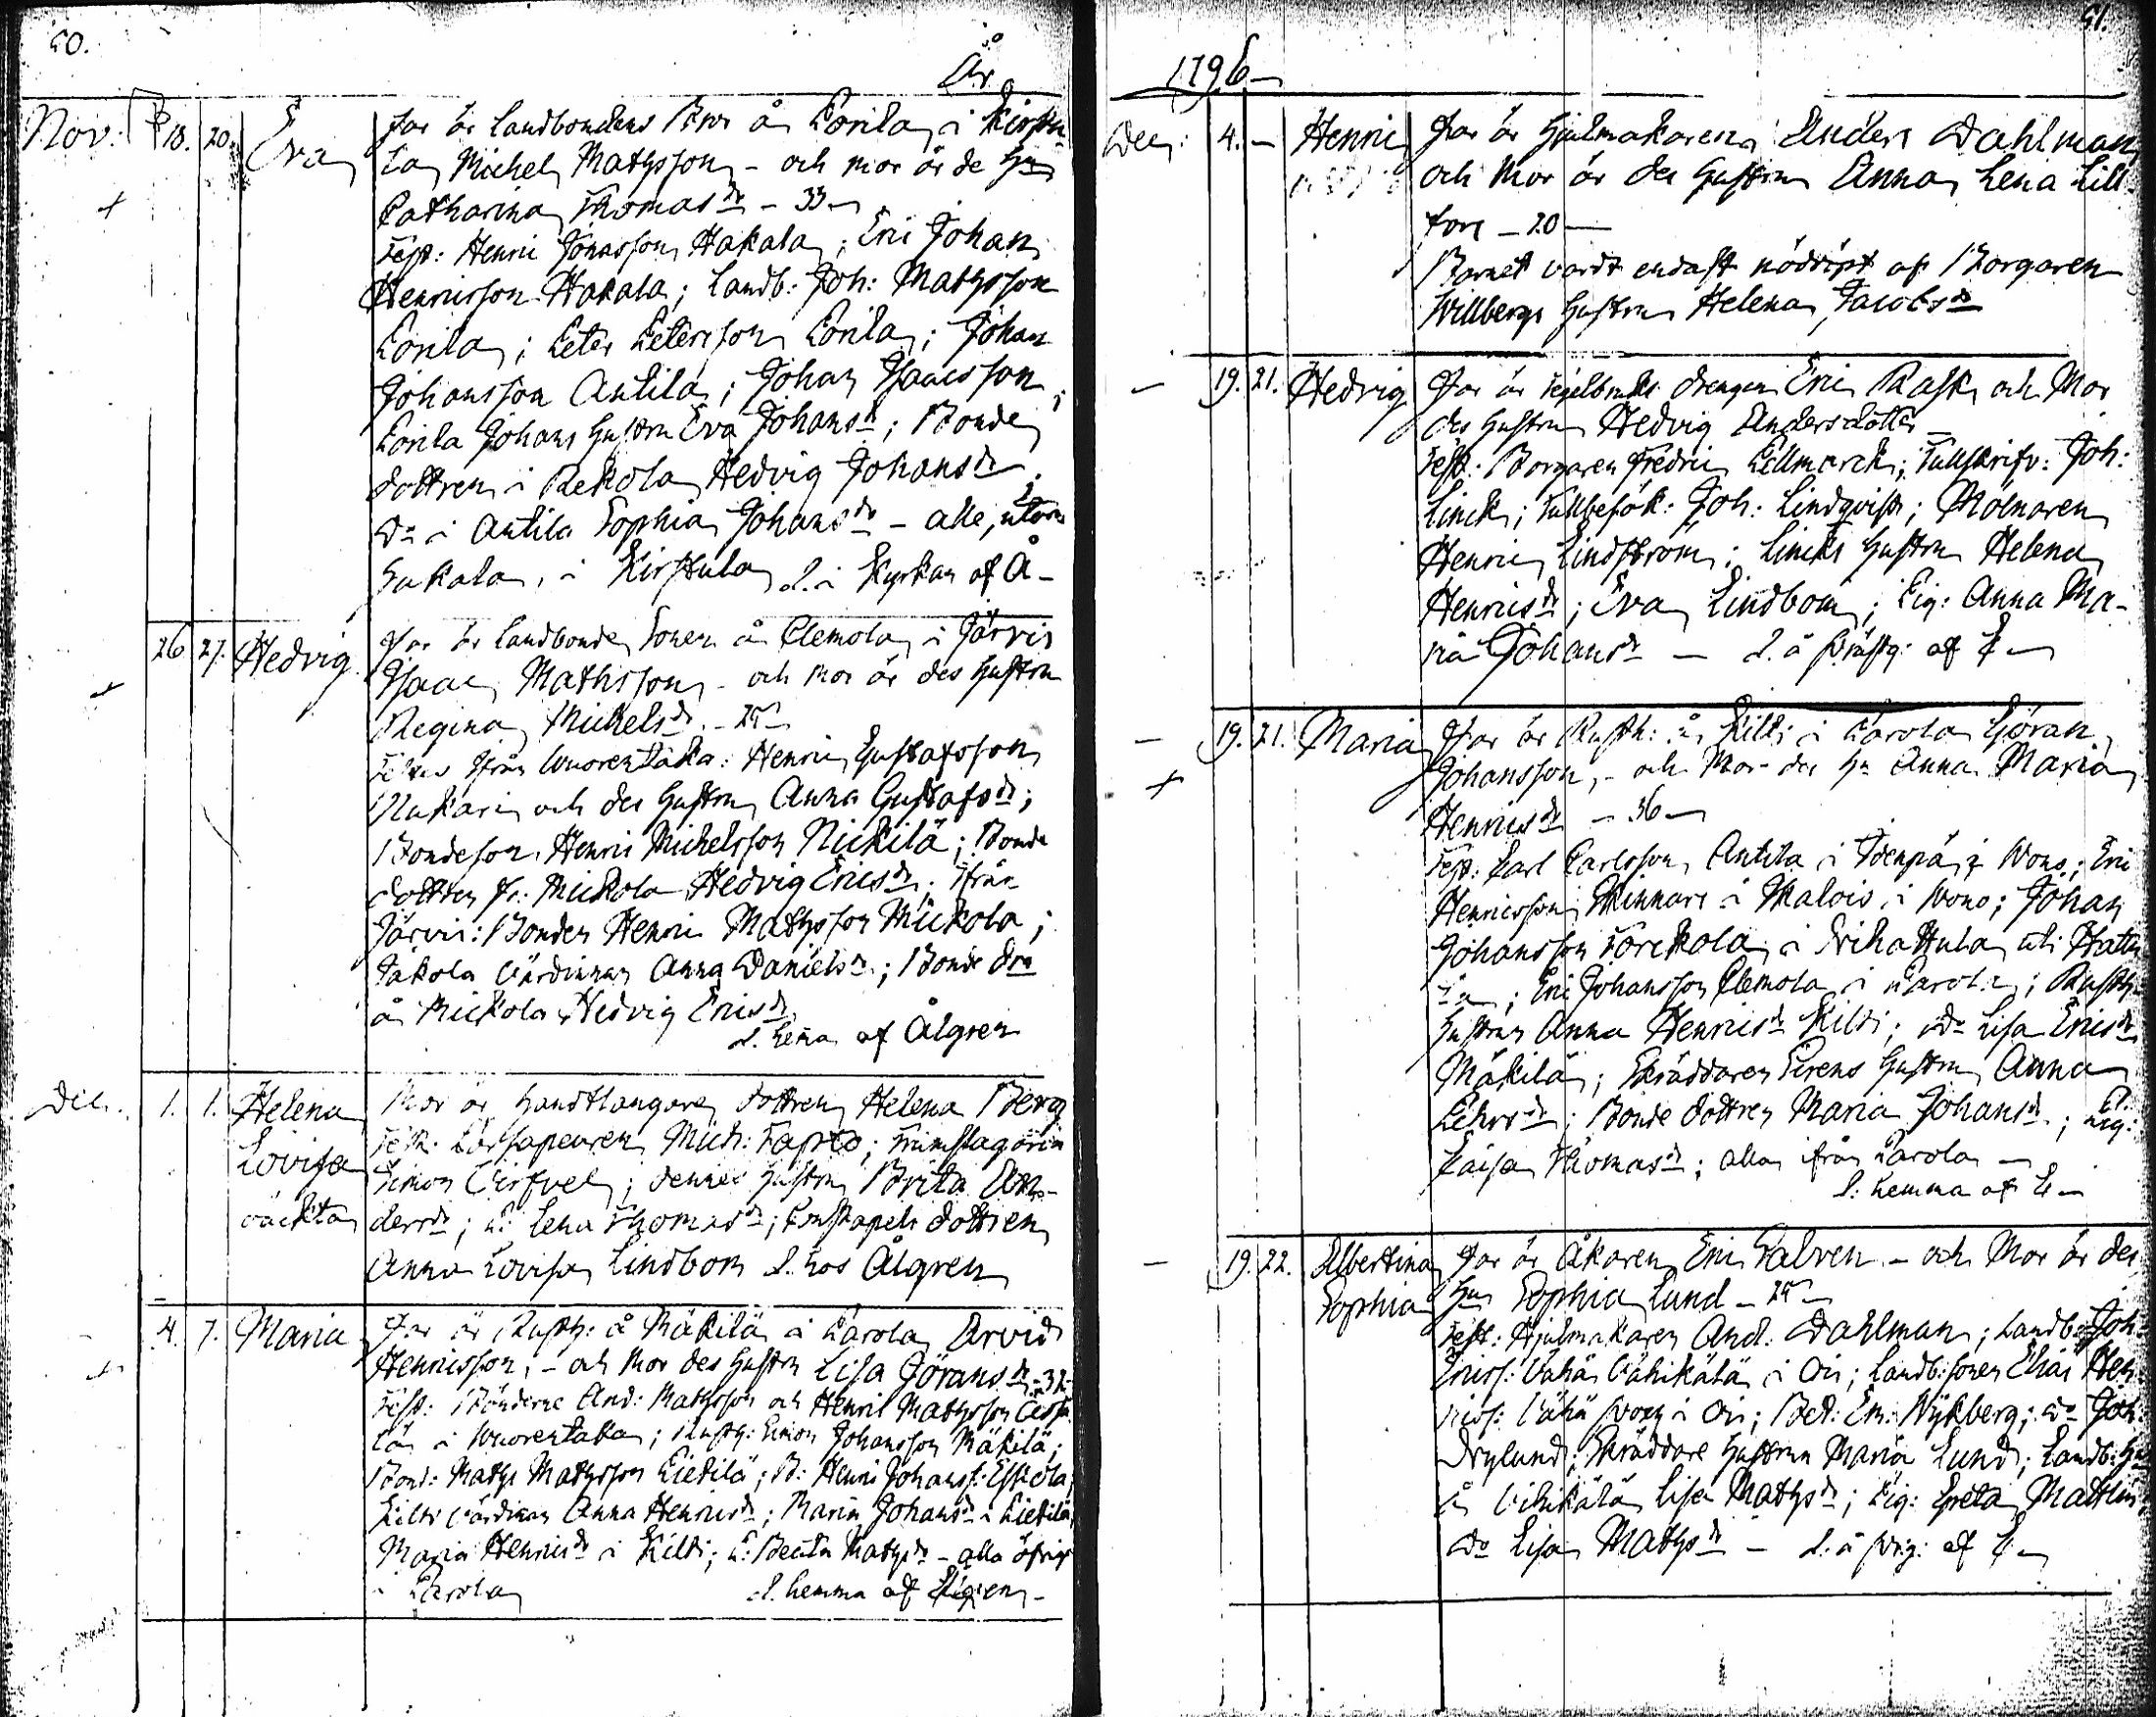 50.
År
Nov: 18. 20. Eva
Far är Landbondens Bror å Eorila i Kirstu-
la Michel Mathsson - och mor är des Hu
Catharina Thomasdr - 33 -
Test: Henric Jönasson Hakala; Eric Johan
Henricsson Hakala; Landb: Joh: Mathsson
Eorila; Peter Petersson Eorila; Johan
Johansson Antila; Johan Isaacsson;
Eorila Johans Hustru Eva Johansdr; Bonde
dottren i Rekola Hedvig Johansdr;
Do i Antila Sophia Johansdr - alle, utom
Hakala, i Kirstula d. i Kyrkan af Å-
26 27. Hedvig
Far är Landbonde Sonen å Clemola i Järvis
Isaac Mathsson - och mor är des Hustru
Regina Michelsdr - 25 -
ifrån Wuorentaka: Henric Gustafsson
Nakari och des Hustru Anna Gustafsdr;
Bondeson Henric Michelsson Nickilä; Bonde
dottren fr: Mickola Hedvig Ericsdr; ifrån
Järvis: Bonden Henric Mathsson Mickola;
Jakola Värdinnan Anna Danielsdr; Bonde dr
å Mickola Hedvig Ericsdr
d. hema af Ålgren
Dec. 1. 1. Helena
Lovisa
oäckta
Mor är Handtlangare dottren Helena Berg
Test: Mich: Tapto;
Simon; dennes Hustru Brita An-
dersdr; P: Lena Thomasdr; Constapels dottren
Anna Lovisa Lindbom d. hos Ålgren
4. 7. Maria
Far är Rusth: å Mäkilä i Parola Arvid
Henricsson, - och Mor des Hustru Lisa Göransdr - 32 -
Test: Bönderne And: Mathsson och Henric Mathsson
i Wuorentaka; Rusth: Simon Johansson Mäkilä;
Bond: Maths Mathsson Lietilä; B: Henric Johanss: Eskola;
Kilti Värdinnan Anna Henricsdr; Maria Johansdr i Lietilä,
Maria Henricsdr i Kilti; P: Beata Mathsdr - alla öfrige
i Parola d. hemma af Ålgren -
51.
1796 -
Dec: 4. - Henric
Far är Hjulmakaren Anders Dahlman
och Mor är des Hustru Anna Lena Lill-
fors - 20 -
Barnet vardt endast nöddöpt af Borgaren
Willbergs Hustru Helena Jacobsdr
- 19. 21. Hedvig
Far är Tegelbruks drengen Eric Rask och Mor
des Hustru Hedvig Andersdotter -
Test: Borgaren Fredric Lillmarck; Tullskrifv: Joh:
Linck; Tullbesök: Joh: Lindqvist; Mölnaren
Henric Lindström; Lincks Hustru Helena
Henricsdr; Eva Lindbom; Pig: Anna Ma-
ria Johansdr - d. å Prästg: af
- 19. 21. Maria
Far är Rusth: å Kilti i Parola Göran
Johansson, - och Mor des Hu Anna Maria
Henricsdr - 36 -
Test: Carl Carlsson Antila i Idenpä i Wono; Eric
Henricsson Minnari i Malois i Wono; Johan
Johansson Torckola i Inhattula uti Hattu
la; Eric Johansson Clemola i Parola; Rusth:
Hustrun Anna Henricsdr Kilti; Do Lisa Ericsdr
Mäkilä; Skräddaren Sirens Hustru Anna
; Bonde dottren Maria Johansdr; Pig:
Caisa Thomasdr; alla ifrån Parola -
d: hemma af
- 19. 22. Albertina
Sophia
Far är Åkaren Eric Galven - och Mor är des
Hu Sophia Lund - 25 -
Test: Hjulmakaren And: Dahlman; Landb: Joh
Ericss: Vähä Vähikälä i Ois; Landb: sonen Elias Hen
ricss: Vähä i Ois; Bet: Em: Nykberg; Do Joh
Skräddare Hustrun Maria Lund; Landb: Hu
å Vihikälä Lisa Mathsdr; Pig: Greta
Do Lisa Mathsdr - d. å Prg: af